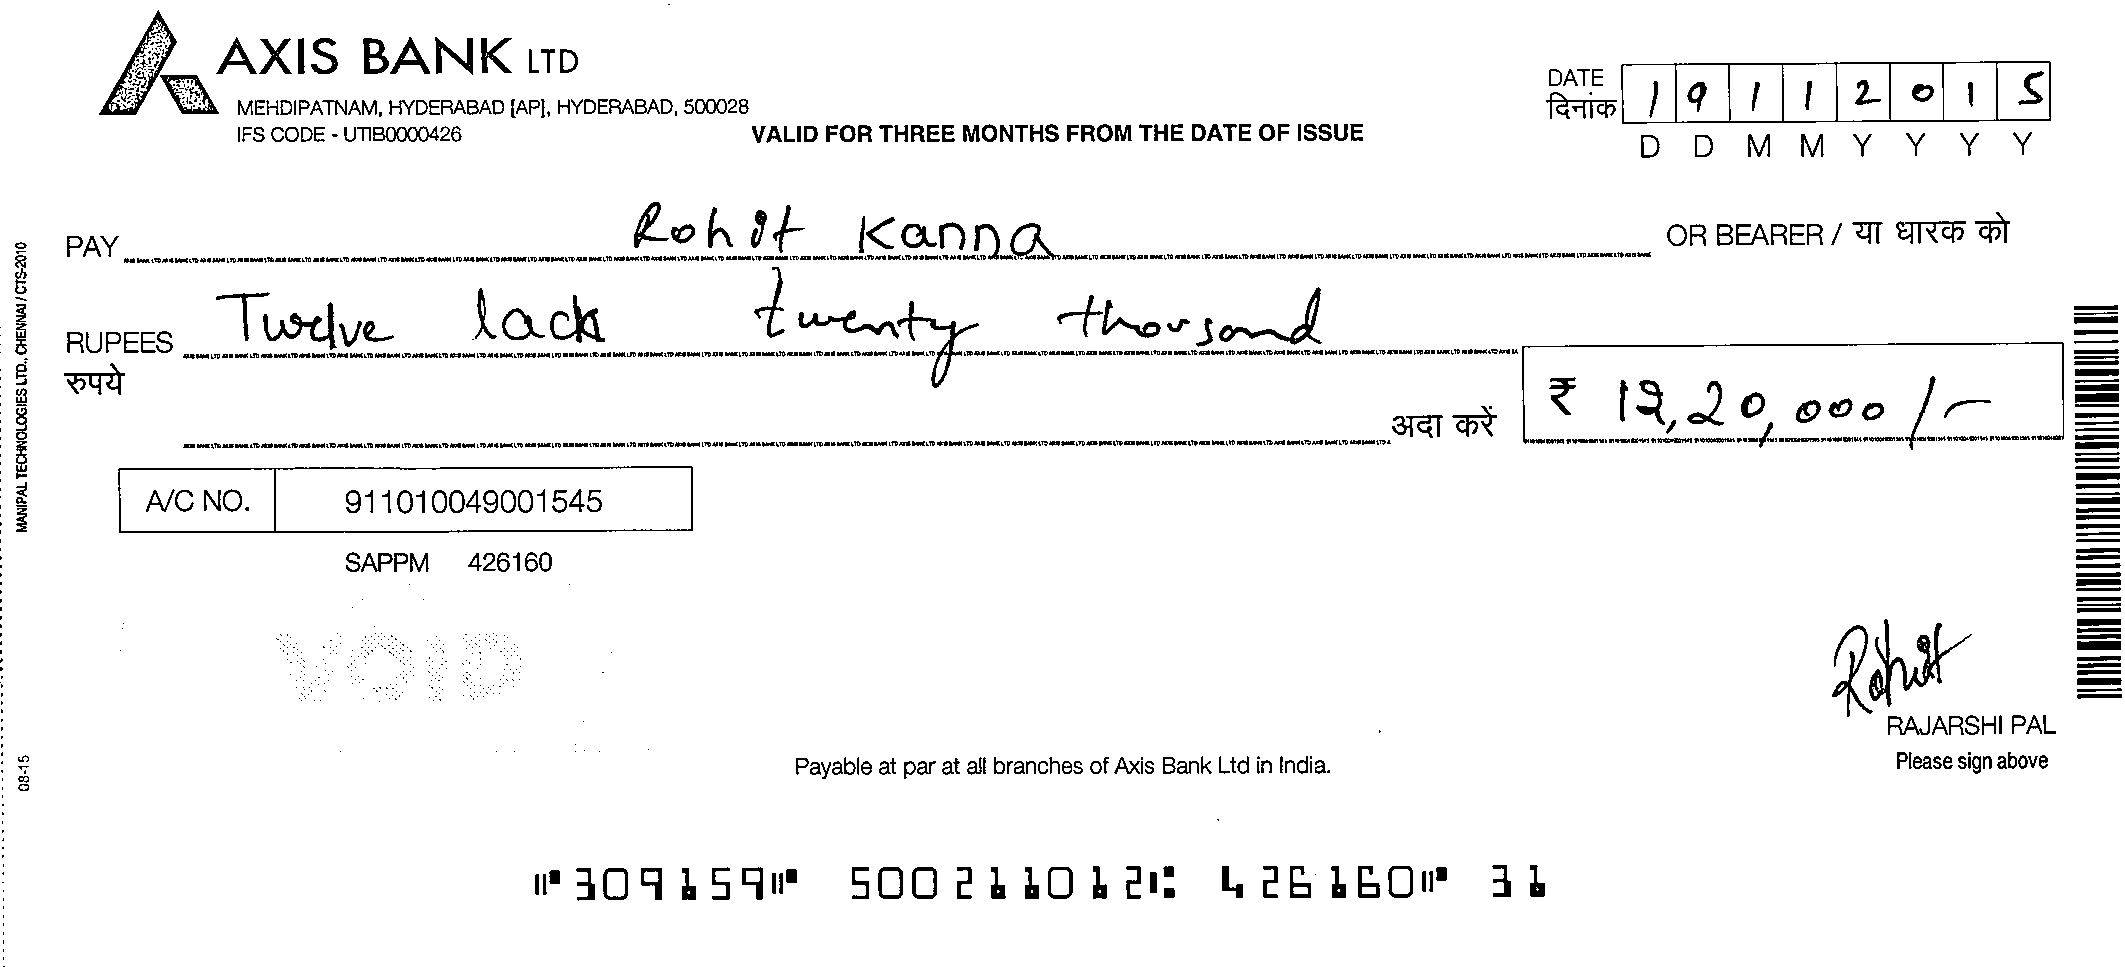 AXIS BANK LTD
MEHDIPATNAM, HYDERABAD [AP], HYDERABAD, 500028
IFS CODE - UTIB0000426
VALID FOR THREE MONTHS FROM THE DATE OF ISSUE
DATE
दिनांक
1 9 1 1 2 0 1 5
D D M M Y Y Y Y
PAY Rohit Kanna OR BEARER / या धारक को
RUPEES Twelve lack twenty thousand
रुपये
अदा करें ₹ 12,20,000/-
A/C NO. 911010049001545
SAPPM 426160
VOID
Rohit
RAJARSHI PAL
Please sign above
Payable at par at all branches of Axis Bank Ltd in India.
309159 500211012 426160 31
MANIPAL TECHNOLOGIES LTD., CHENNAI / CTS-2010
08-15